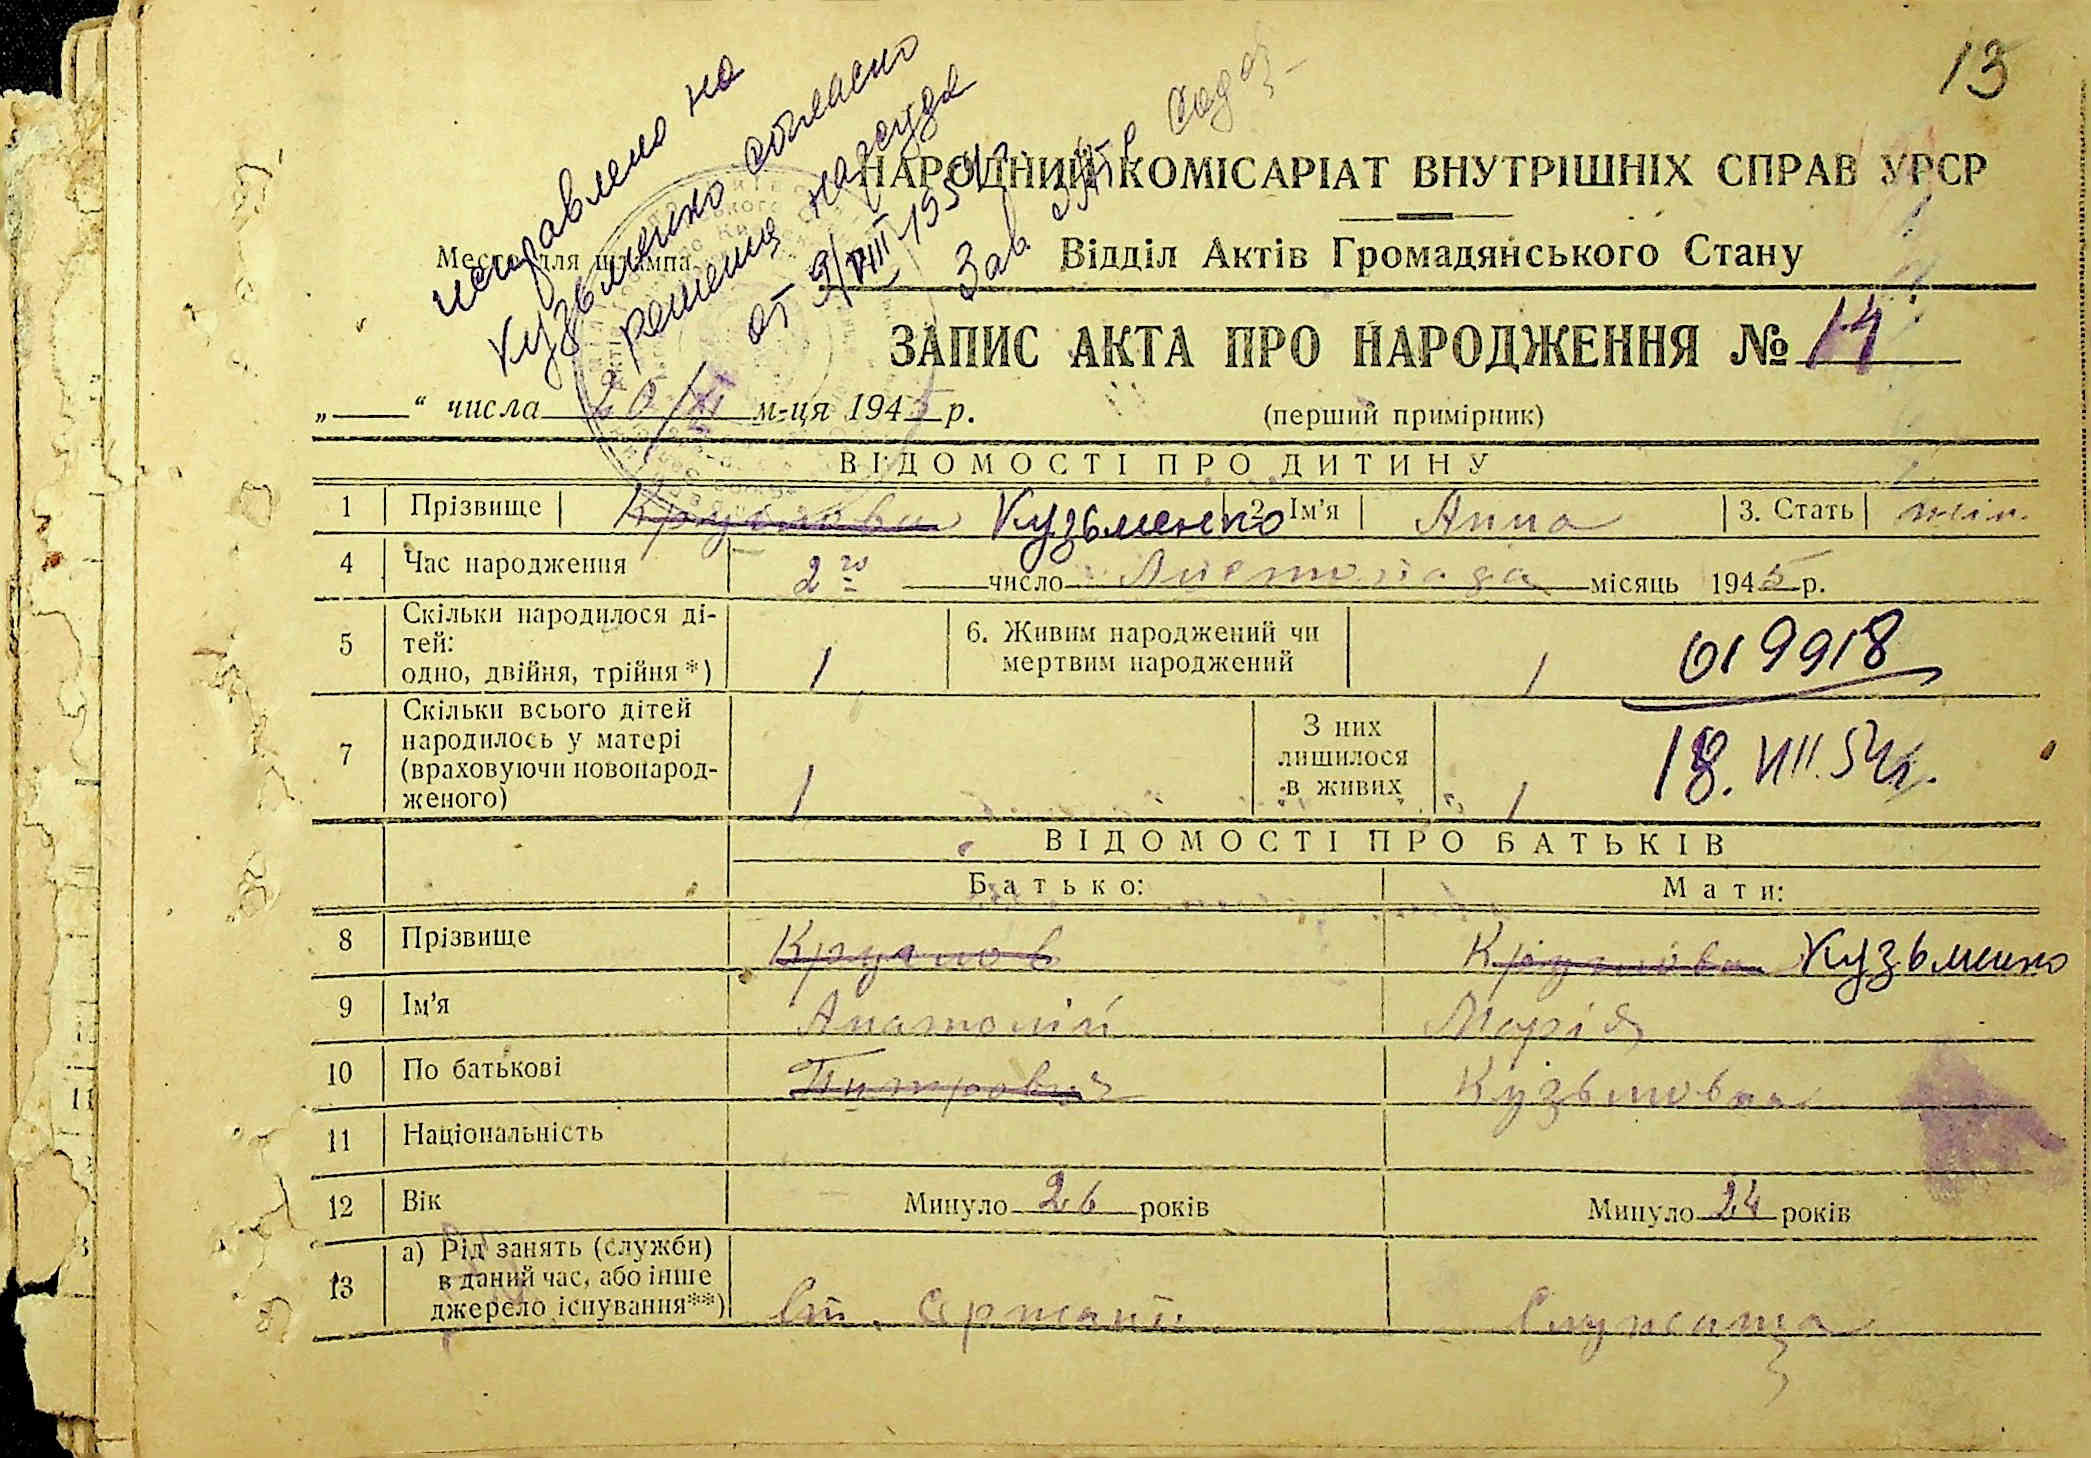 13
исправлено на
Кузьменко согласно
решения нарсуда
от 9/VIII 1954 г.
Зав ЗАГС
НАРОДНИЙ КОМІСАРІАТ ВНУТРІШНІХ СПРАВ УРСР
Место для штампа
Відділ Актів Громадянського Стану
ЗАПИС АКТА ПРО НАРОДЖЕННЯ № 14
„ “ числа 20/XI м-ця 1945 р. (перший примірник)
ВІДОМОСТІ ПРО ДИТИНУ
1 Прізвище Кузьменко 2. Ім'я Анна 3. Стать жін.
4 Час народження 2го число Листопада місяць 1945 р.
5 Скільки народилося ді-
тей:
одно, двійня, трійня *) 1
6. Живим народжений чи
мертвим народжений 1
019918
7 Скільки всього дітей
народилось у матері
(враховуючи новонарод-
женого) 1
З них
лишилося
в живих 1
18. VIII. 54 г.
ВІДОМОСТІ ПРО БАТЬКІВ
Батько: Мати:
8 Прізвище Кузьменко
9 Ім'я Анатолій Марія
10 По батькові Кузьмовна
11 Національність
12 Вік Минуло 26 років Минуло 24 років
13 а) Рід занять (служби)
в даний час, або інше
джерело існування**) Ст. сержант Служаща